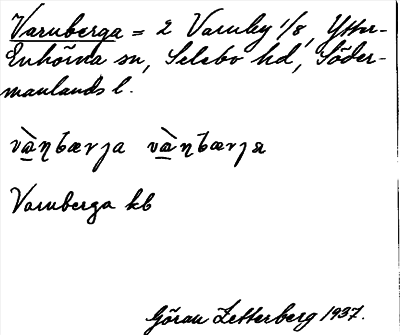 Varnberga = 2 Varnby 1/8, Ytter-
Enhörna sn, Selebo hd, Söder-
manlands l.
và̱ṇbærja và̱ṇbærjа
Varnberga kb
Göran Zetterberg 1937.